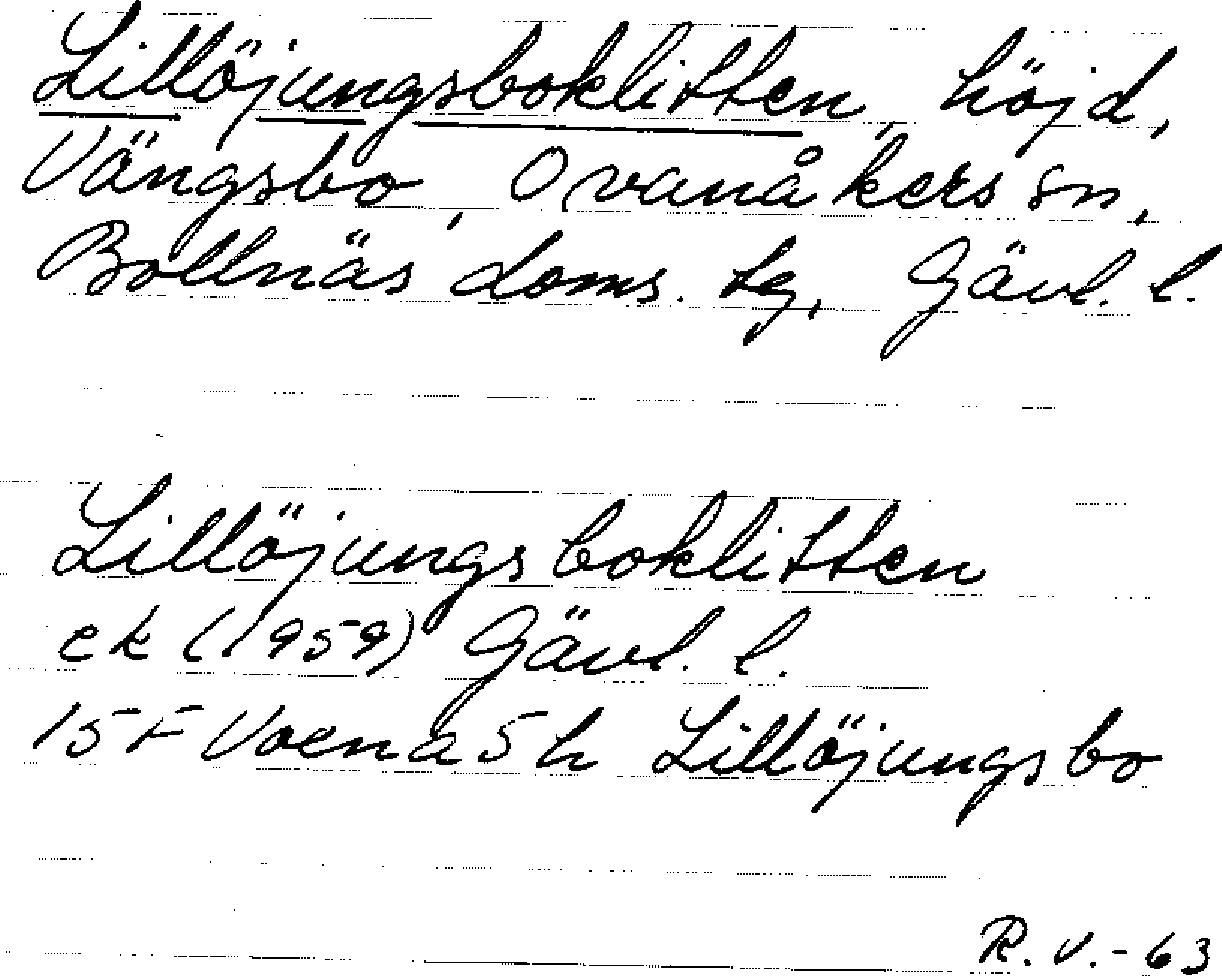 Lillöjungsboklitten, höjd,
Vängsbo, Ovanåkers sn,
Bollnäs doms. tg, Gävl. l.
Lillöjungsboklitten
ek (1959) Gävl. l.
15F Voxna 5h Lillöjungsbo
R.V.-63